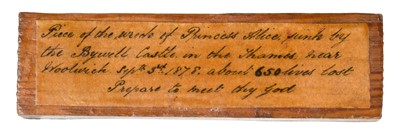 Piece of the wreck of Princess Alice, sunk by
the Bywell Castle in the Thames near
Woolwich Sept 3rd, 1878, about 650 lives lost
Prepare to meet thy God